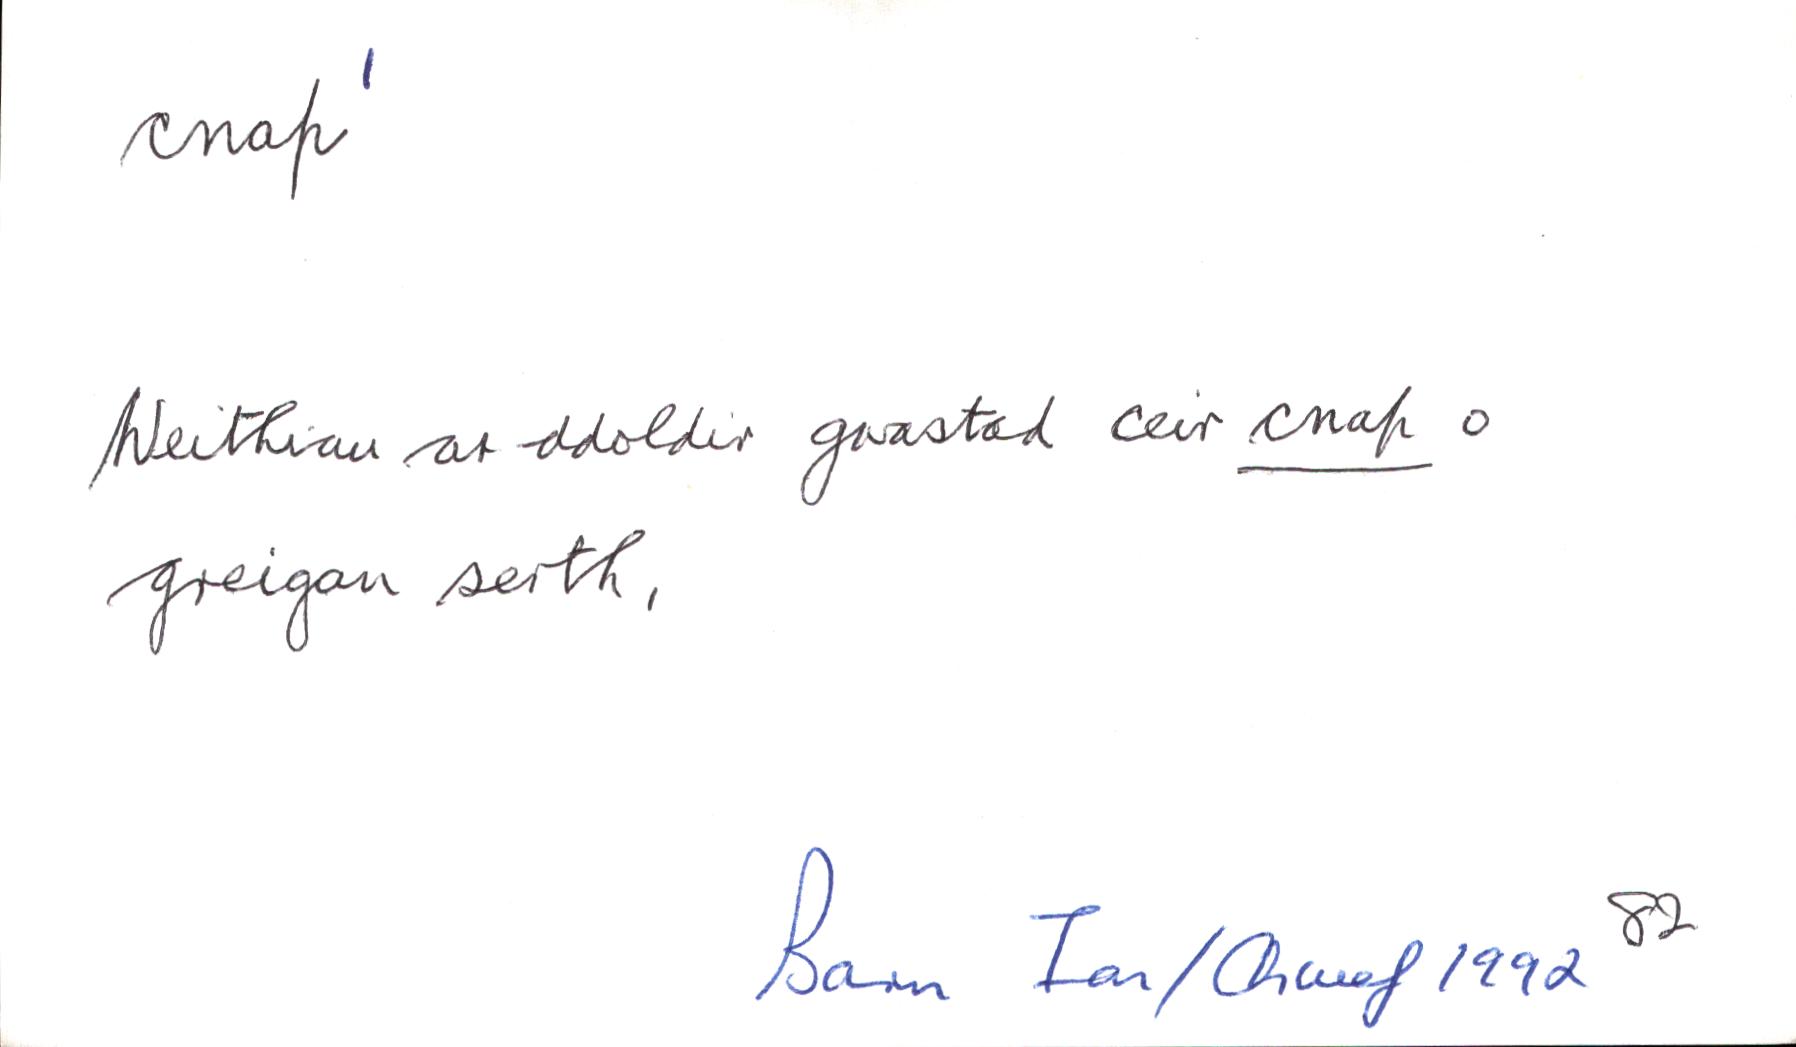 cnap¹
Weithiau ar ddoldir gwastad ceir cnap o
greigan serth,
Barn Ion/Chwef 1992 82